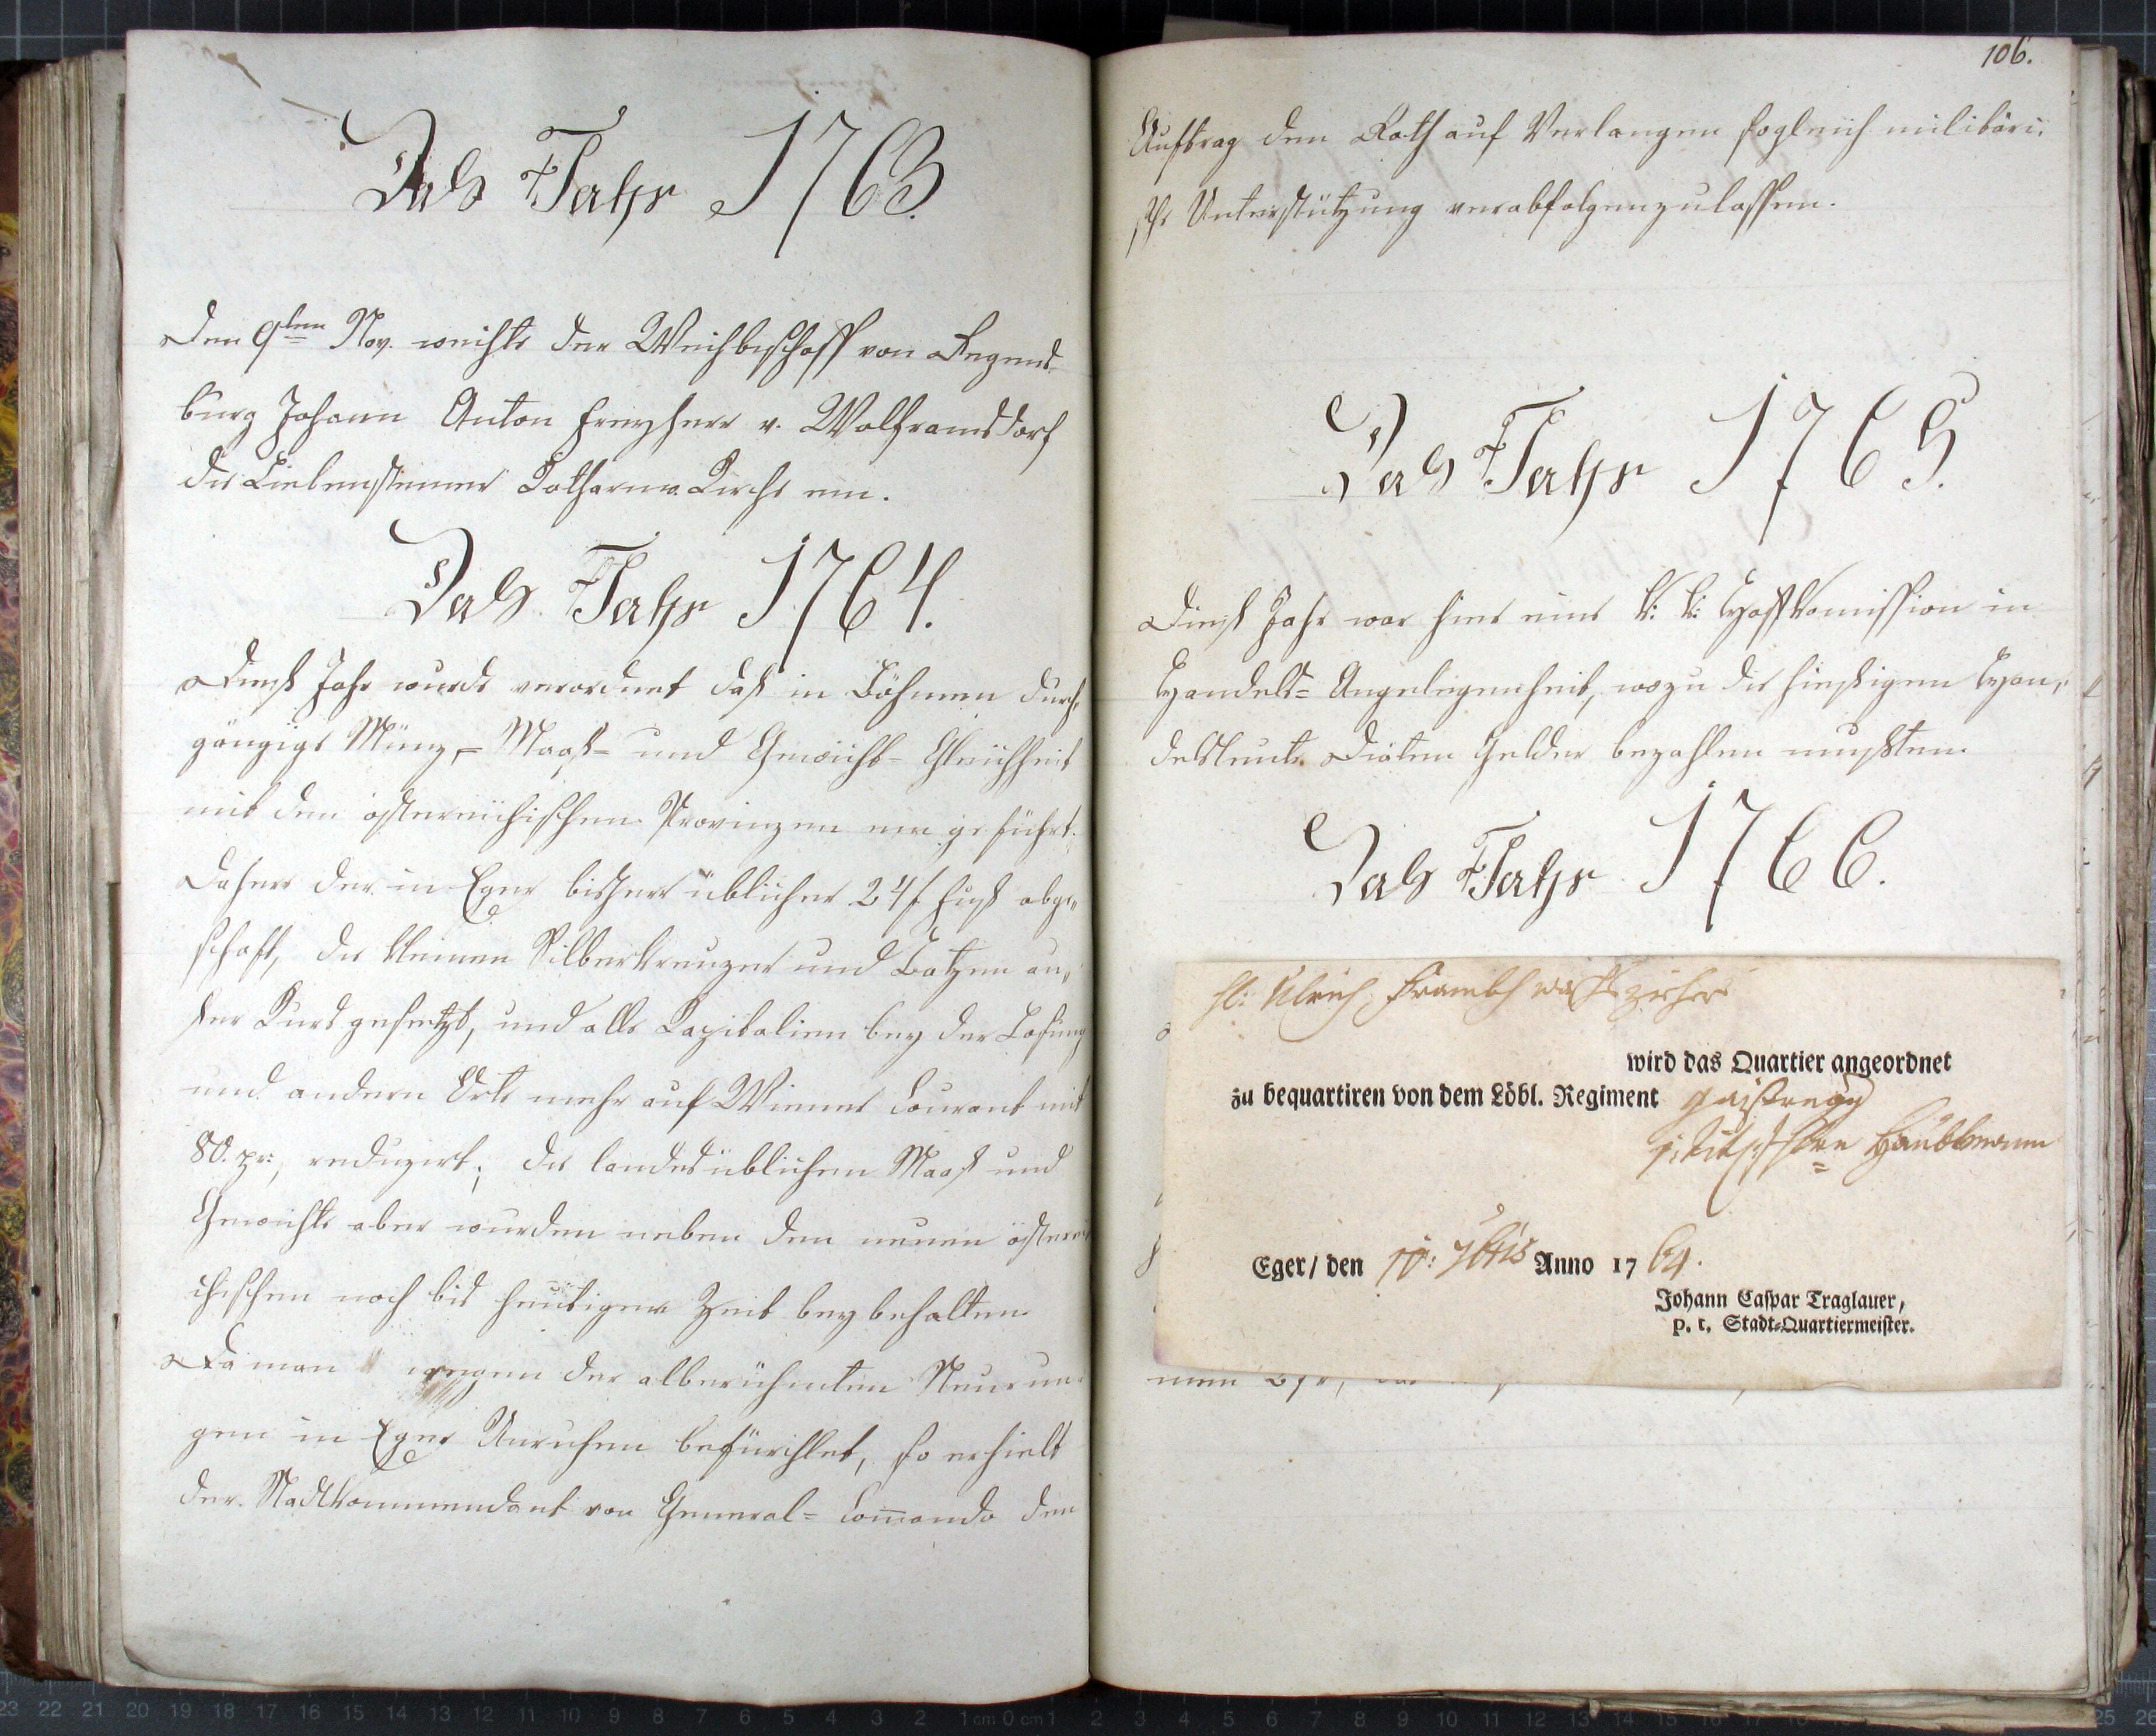 Das Jahr 1763.
Den 9ten Nov. weihte der Weichbischoff von Regens-
burg Johann Anton Freyherr v. Wolframsdorf
die Liebensteiner Katharina Kirche ein.
Das Jahr 1764.
Dieses Jahr wurde verordnet daß in Böhmen durch,
gängige Münz,= Maaß= und Gewicht= Gleichheit
mit den östereichischen Provinzen eingeführt.
Daher der in Eger bisher übliche 24 f Fuß abge„
schaft, die kleinen Silberkreuzer und Batzen au„
ßer Kurs gesetzt, und alle Kapitalien bey der Losung
und andern Orts mehr auf Wiener Courant mit
80. pr:, reduzirt; die landesüblichen Maaß und
Gewichte aber wurden neben den neuen österei
chischen noch bis heutigen Zeit beybehalten
Da man wegen der allberührten Neuerun-
gen in Eger Unruhen befürchtet, so erhielt
der Stadtkommendant von General= Comando den
106.
Auftrag dem Rath auf Verlangen sogleich militäri,
sche Unterstützung verabfolgenzulassen.
Das Jahr 1765.
Dieses Jahr war hier eine k: k: Hofkomission in
Handels= Angelegenheit, wozu die hiesigen Han„
delsleute Diäten Gelder bezahlen mußten
Das Jahr 1766.
H: Ulrich
wird das Quartier angeordnet
zu bequartiren von dem Löbl. Regiment
Haubtmann
Eger/ den 10: 7bris Anno 1764.
Johann Caspar Traglauer,
p. t. Stadt-Quartiermeister.